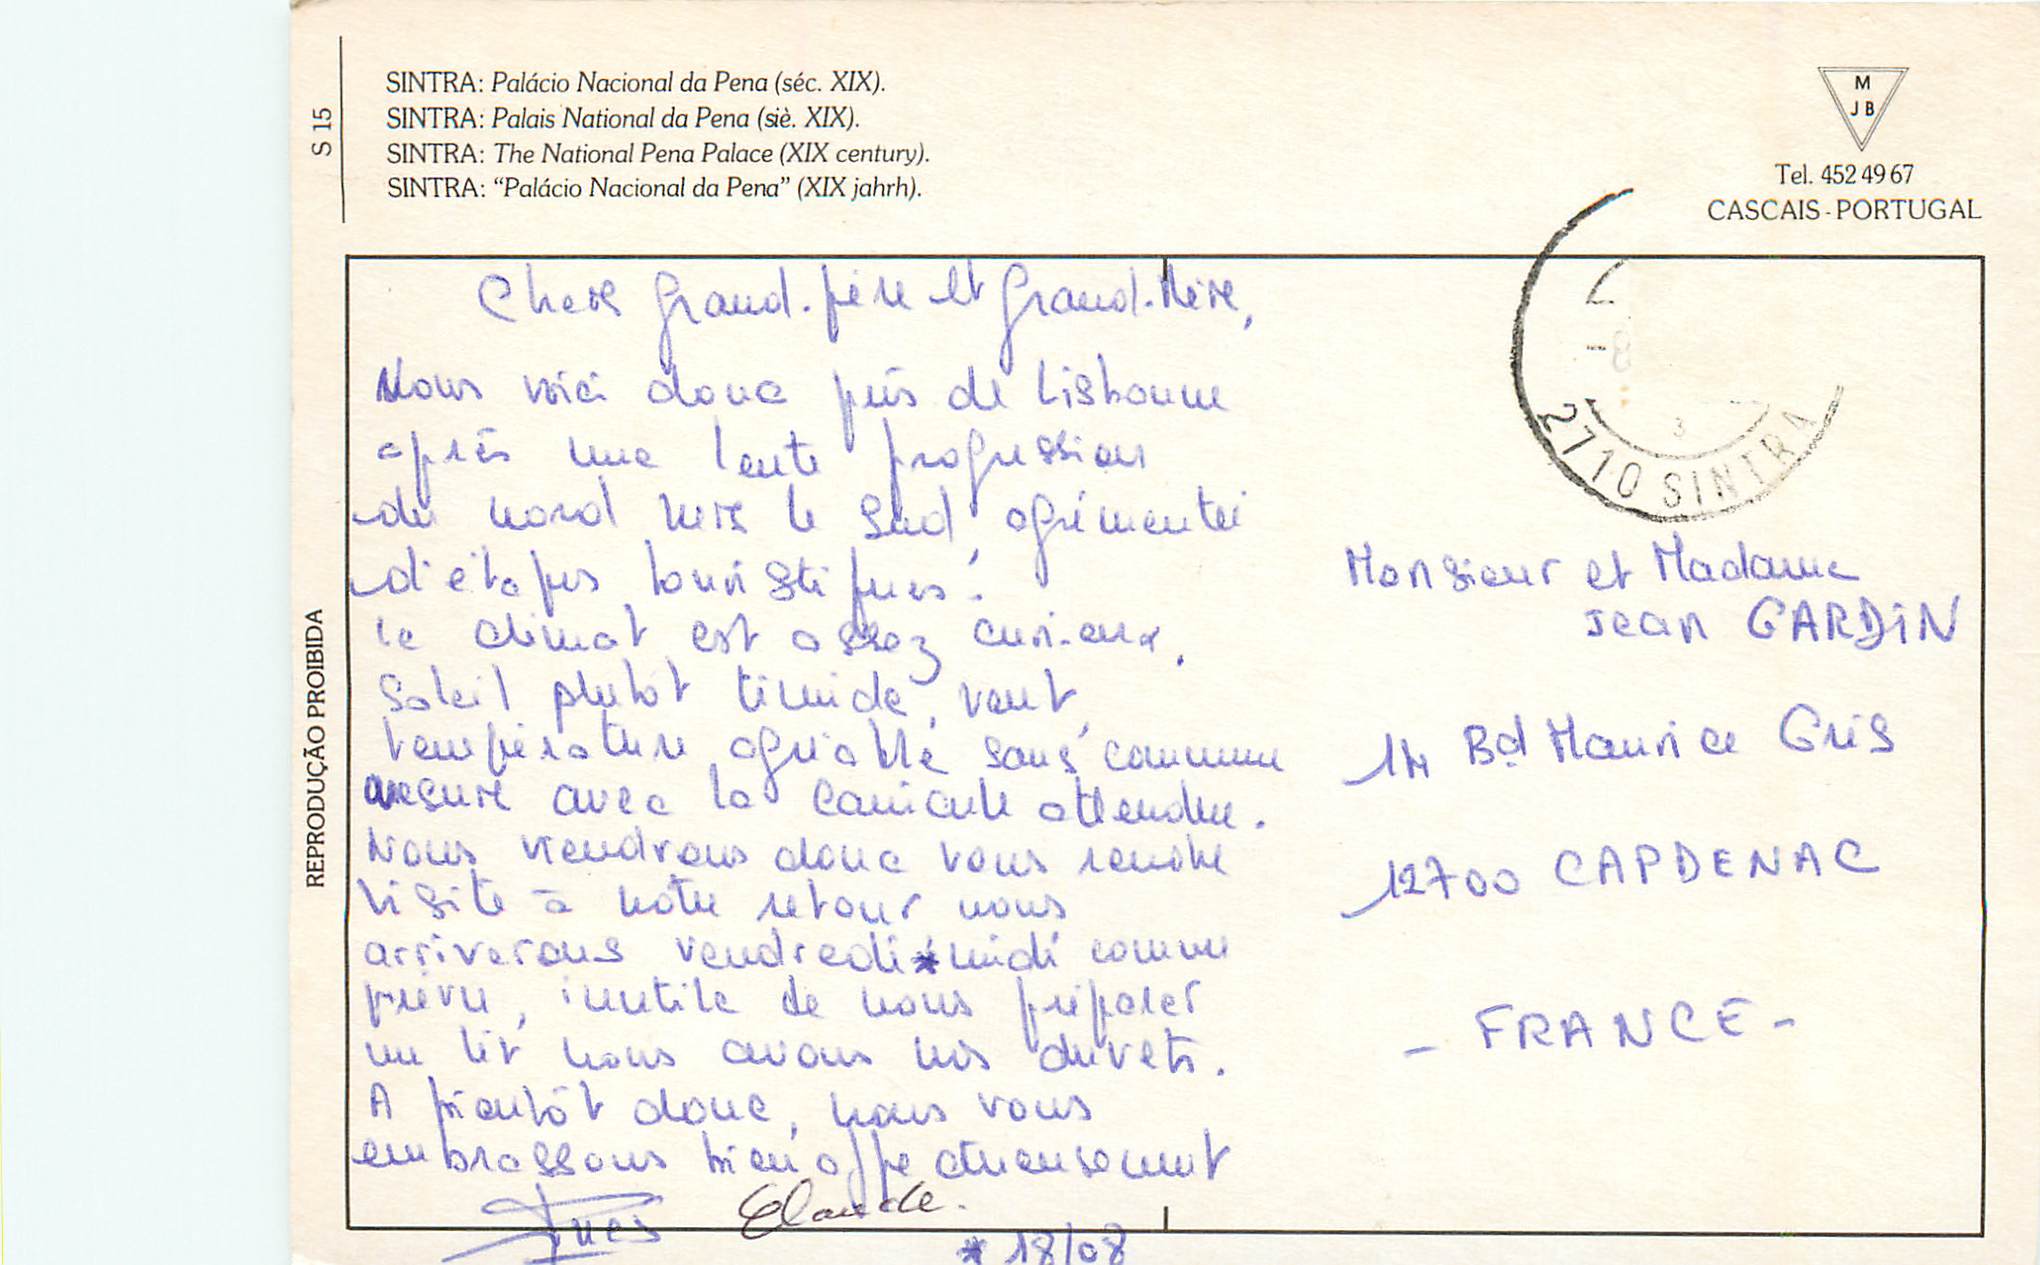 S 15
SINTRA: Palácio Nacional da Pena (séc. XIX).
SINTRA: Palais National da Pena (siè. XIX).
SINTRA: The National Pena Palace (XIX century).
SINTRA: “Palácio Nacional da Pena” (XIX jahrh).
M
JB
Tel. 452 49 67
CASCAIS - PORTUGAL
REPRODUÇÃO PROIBIDA
Chers Grand-père et Grand-Mère,
Nous voici donc près de Lisbonne
après une lente progression
du nord vers le Sud, agrémentée
d'étapes touristiques.
Le climat est assez curieux,
Soleil plutôt timide, vent,
température agréable sans commune
mesure avec la canicule attendue.
Nous viendrons donc vous rendre
visite à notre retour nous
arriverons vendredi * midi comme
prévu, inutile de nous préparer
un lit nous avons nos duvets.
A bientôt donc, nous vous
embrassons bien affectueusement
Yves Claude.
* 18/08
-8
3
2710 SINTRA
Monsieur et Madame
Jean GARDIN
14 Bd Maurice Gris
12700 CAPDENAC
- FRANCE -